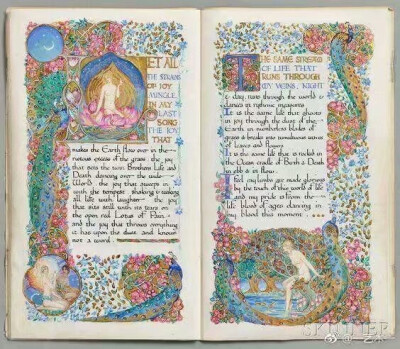 LET ALL
THE STRAINS
OF JOY
MINGLE
IN MY
LAST
SONG
THE JOY
THAT
makes the Earth flow over in the
riotous excess of the grass the joy
that sets the twin Brothers Life and
Death dancing over the wide
World the joy that sweeps in
with the tempest shaking & waking
all life with laughter the joy
that sits still with its tears on
the open red Lotus of Pain
and the joy that throws everything
it has upon the dust and knows
not a word
THE SAME STREAM
OF LIFE THAT
RUNS THROUGH
MY VEINS NIGHT
& day runs through the world &
dances in rythmic measures
It is the same life that shoots
in joy through the dust of the
Earth in numberless blades of
grass & breaks into tumultuous waves
of Leaves and flowers
It is the same life that is rocked in
the Ocean cradle of Birth & Death
in ebb & in flow
I feel my limbs are made glorious
by the touch of this world of life
and my pride is from the
life blood of ages dancing in
my blood this moment
SKINNER